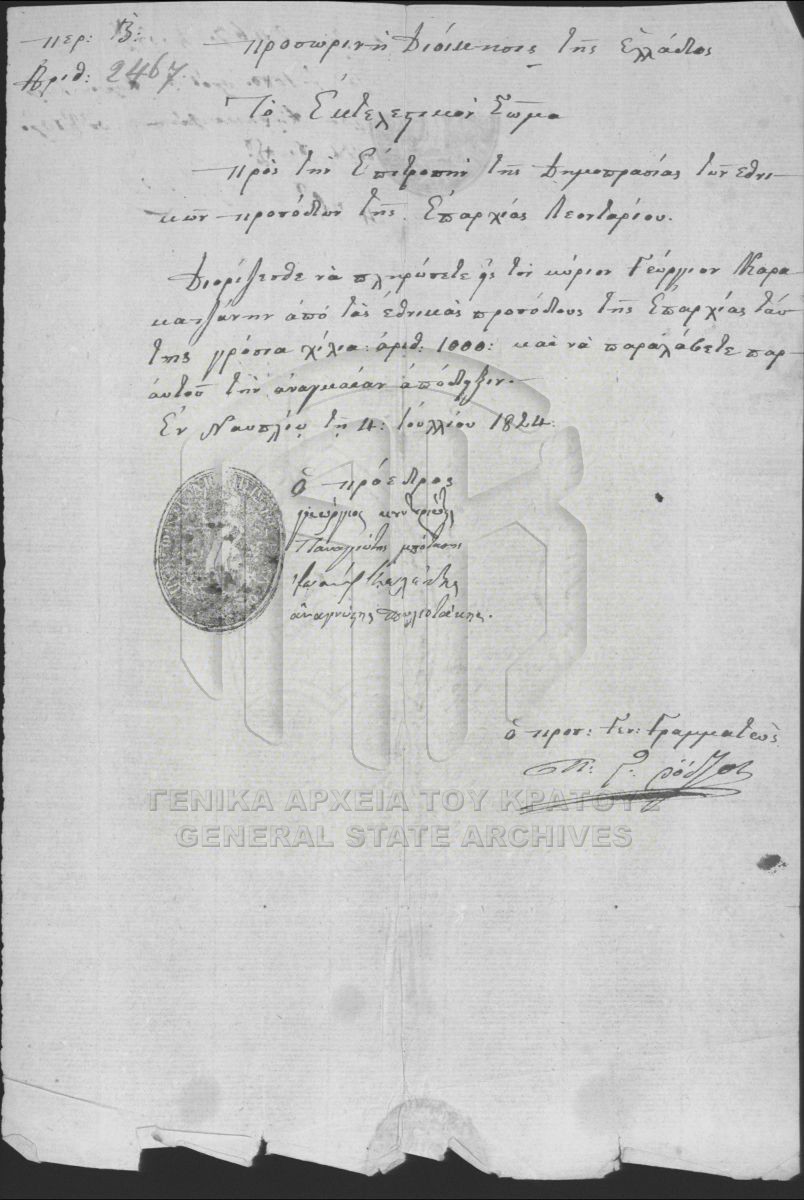 περ: Β:
Ἀριθ: 2467.
Προσωρινὴ Διοίκησις τῆς Ἑλλάδος
Τὸ Ἐκτελεστικὸν Σῶμα
Πρὸς τὴν Ἐπιτροπὴν τῆς Δημοπρασίας τῶν ἐθνι-
κῶν προσόδων τῆς Ἐπαρχίας Λεονταρίου.
Διορίζεσθε νὰ πληρώσετε εἰς τὸν κύριον Γεώργιον Καρα-
κατζάνην ἀπὸ τὰς ἐθνικὰς προσόδους τῆς Ἐπαρχίας ταύ-
της γρόσια χίλια: ἀριθ: 1000: καὶ νὰ παραλάβετε παρ'
αὐτοῦ τὴν ἀναγκαίαν ἀπόδειξιν.
Ἐν Ναυπλίῳ τῇ 4: Ἰουλλίου 1824:
Ὁ Πρόεδρος
γεώργιος κουντουριώτης
Παναγιώτης μπότασης
Ἰωάννης Κωλέττης
ἀναγνώστης σπιλιοτάκης.
ὁ προσ: Γεν: Γραμματεὺς
Π: Γ: Ῥόδιος
ΓΕΝΙΚΑ ΑΡΧΕΙΑ ΤΟΥ ΚΡΑΤΟΥΣ
GENERAL STATE ARCHIVES